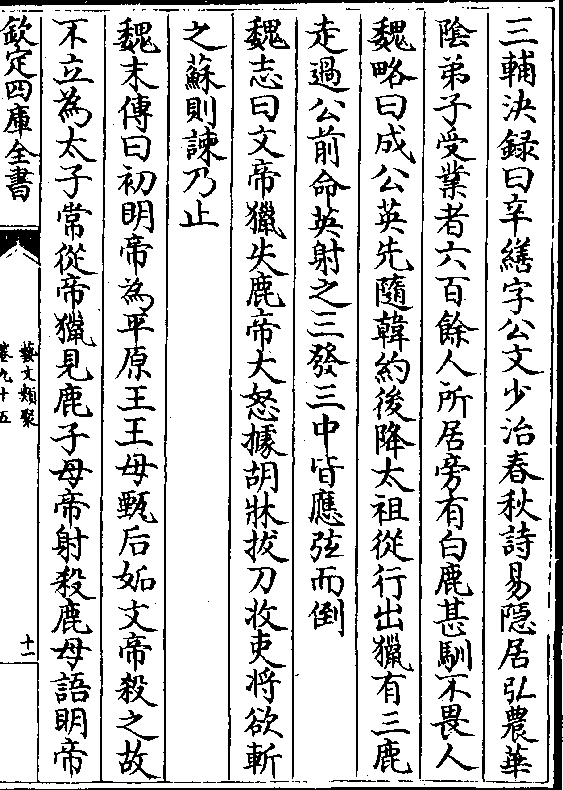 三輔決録曰辛繕字公文少治春秋詩易隠居弘農華
陰弟子受業者六百餘人所居旁有白鹿甚馴不畏人
魏略曰成公英先隨韓約後降太祖從行出獵有三鹿
走過公前命英射之三發三中皆應弦而倒
魏志曰文帝獵失鹿帝大怒據胡牀拔刀收吏将欲斬
之蘇則諫乃止
魏末傳曰初明帝為平原王王母甄后妬文帝殺之故
不立為太子常從帝獵見鹿子母帝射殺鹿母語明帝
欽定四庫全書
藝文類聚
卷九十五
十一